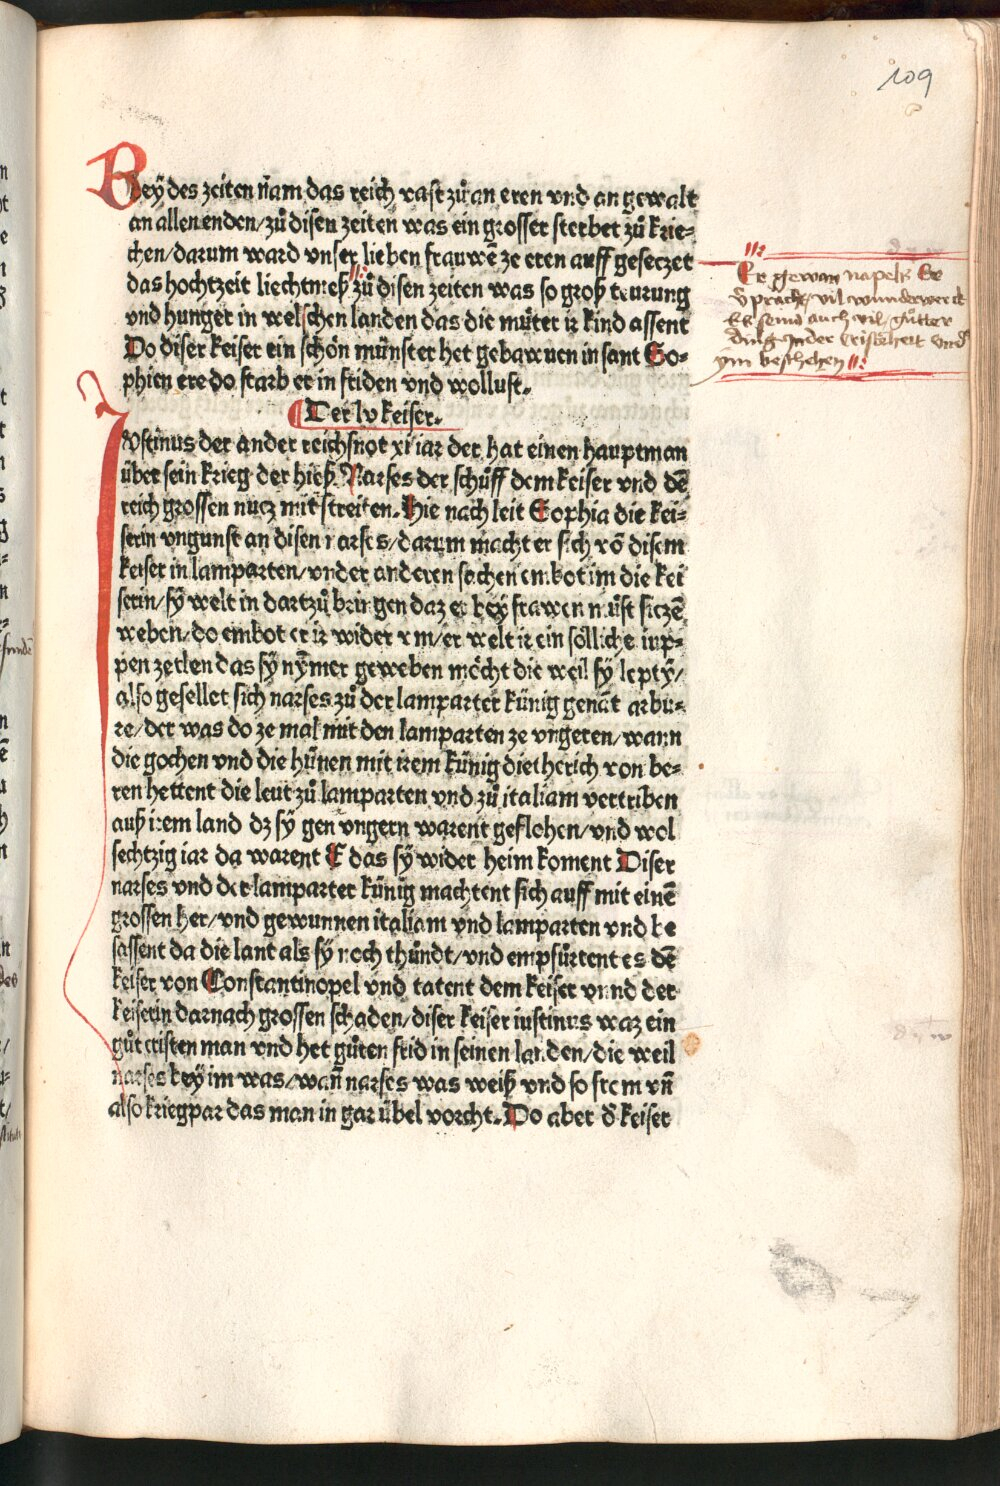 109
Beÿ des zeiten nam das reich vast zuͦ an eren vnd an gewalt
an allen enden/zuͦ disen zeiten was ein grosser sterbet zuͦ krie⸗
chen/darum ward vnser lieben frauwē ze eren auff geseczet
das hochtzeit liechtmeß zuͦ disen zeiten was so groß teurung
vnd hunger in welschen landen das die muͤter ir kind assent
Do diser keiser ein schoͤn muͤnster het gebawuen in sant So⸗
phien ere do starb er in friden vnd wollust.
Er gewan napels Er
vil wunderwerck
Er seind auch vil guͤtter
ding in der Cristēheit vnd
ym beschehen
Der lv keiser.
Iustinus der ander reichsnot xi iar der hat einen hauptman
über sein krieg der hieß Narses der schuͤff dem keiser vnd dē
reich grossen nucz mit streiten. Hie nach leit Sophia die kei⸗
serin vngunst an disen narses/darum macht er sich vō disem
keiser in lamparten/vnder anderen sachen embot im die kei
serin/sÿ welt in dartzuͦ bringen daz er beÿ frawen muͤst siczē
weben/do embot er ir wider vm/er welt ir ein soͤlliche iup⸗
pen zetlen das sÿ nÿmer geweben moͤcht die weil sÿ leptÿ/
also gesellet sich narses zuͦ der lamparter künig genāt arbu⸗
re/der was do ze mal mit den lamparten ze vngeren/wann
die gochen vnd die hünen mit irem künig dietherich von be⸗
ren hettent die leut zuͦ lamparten vnd zuͦ italiam vertriben
auß irem land dz sÿ gen vngern warent geflohen/vnd wol
sechtzig iar da warent E das sÿ wider heim koment Diser
narses vnd der lamparter künig machtent sich auff mit einē
grossen her/vnd gewunnen italiam vnd lamparten vnd be
sassent da die lant als sÿ noch thuͤndt/vnd empfürtent es dē
keiser von Constantinopel vnd tatent dem keiser vnnd der
keiserin darnach grossen schaden/diser keiser iustinus waz ein
guͦt cristen man vnd het guͦten frid in seinen landen/die weil
narses beÿ im was/wan̄ narses was weiß vnd so frem vn̄
also kriegpar das man in gar übel vorcht. Do aber ď keiser